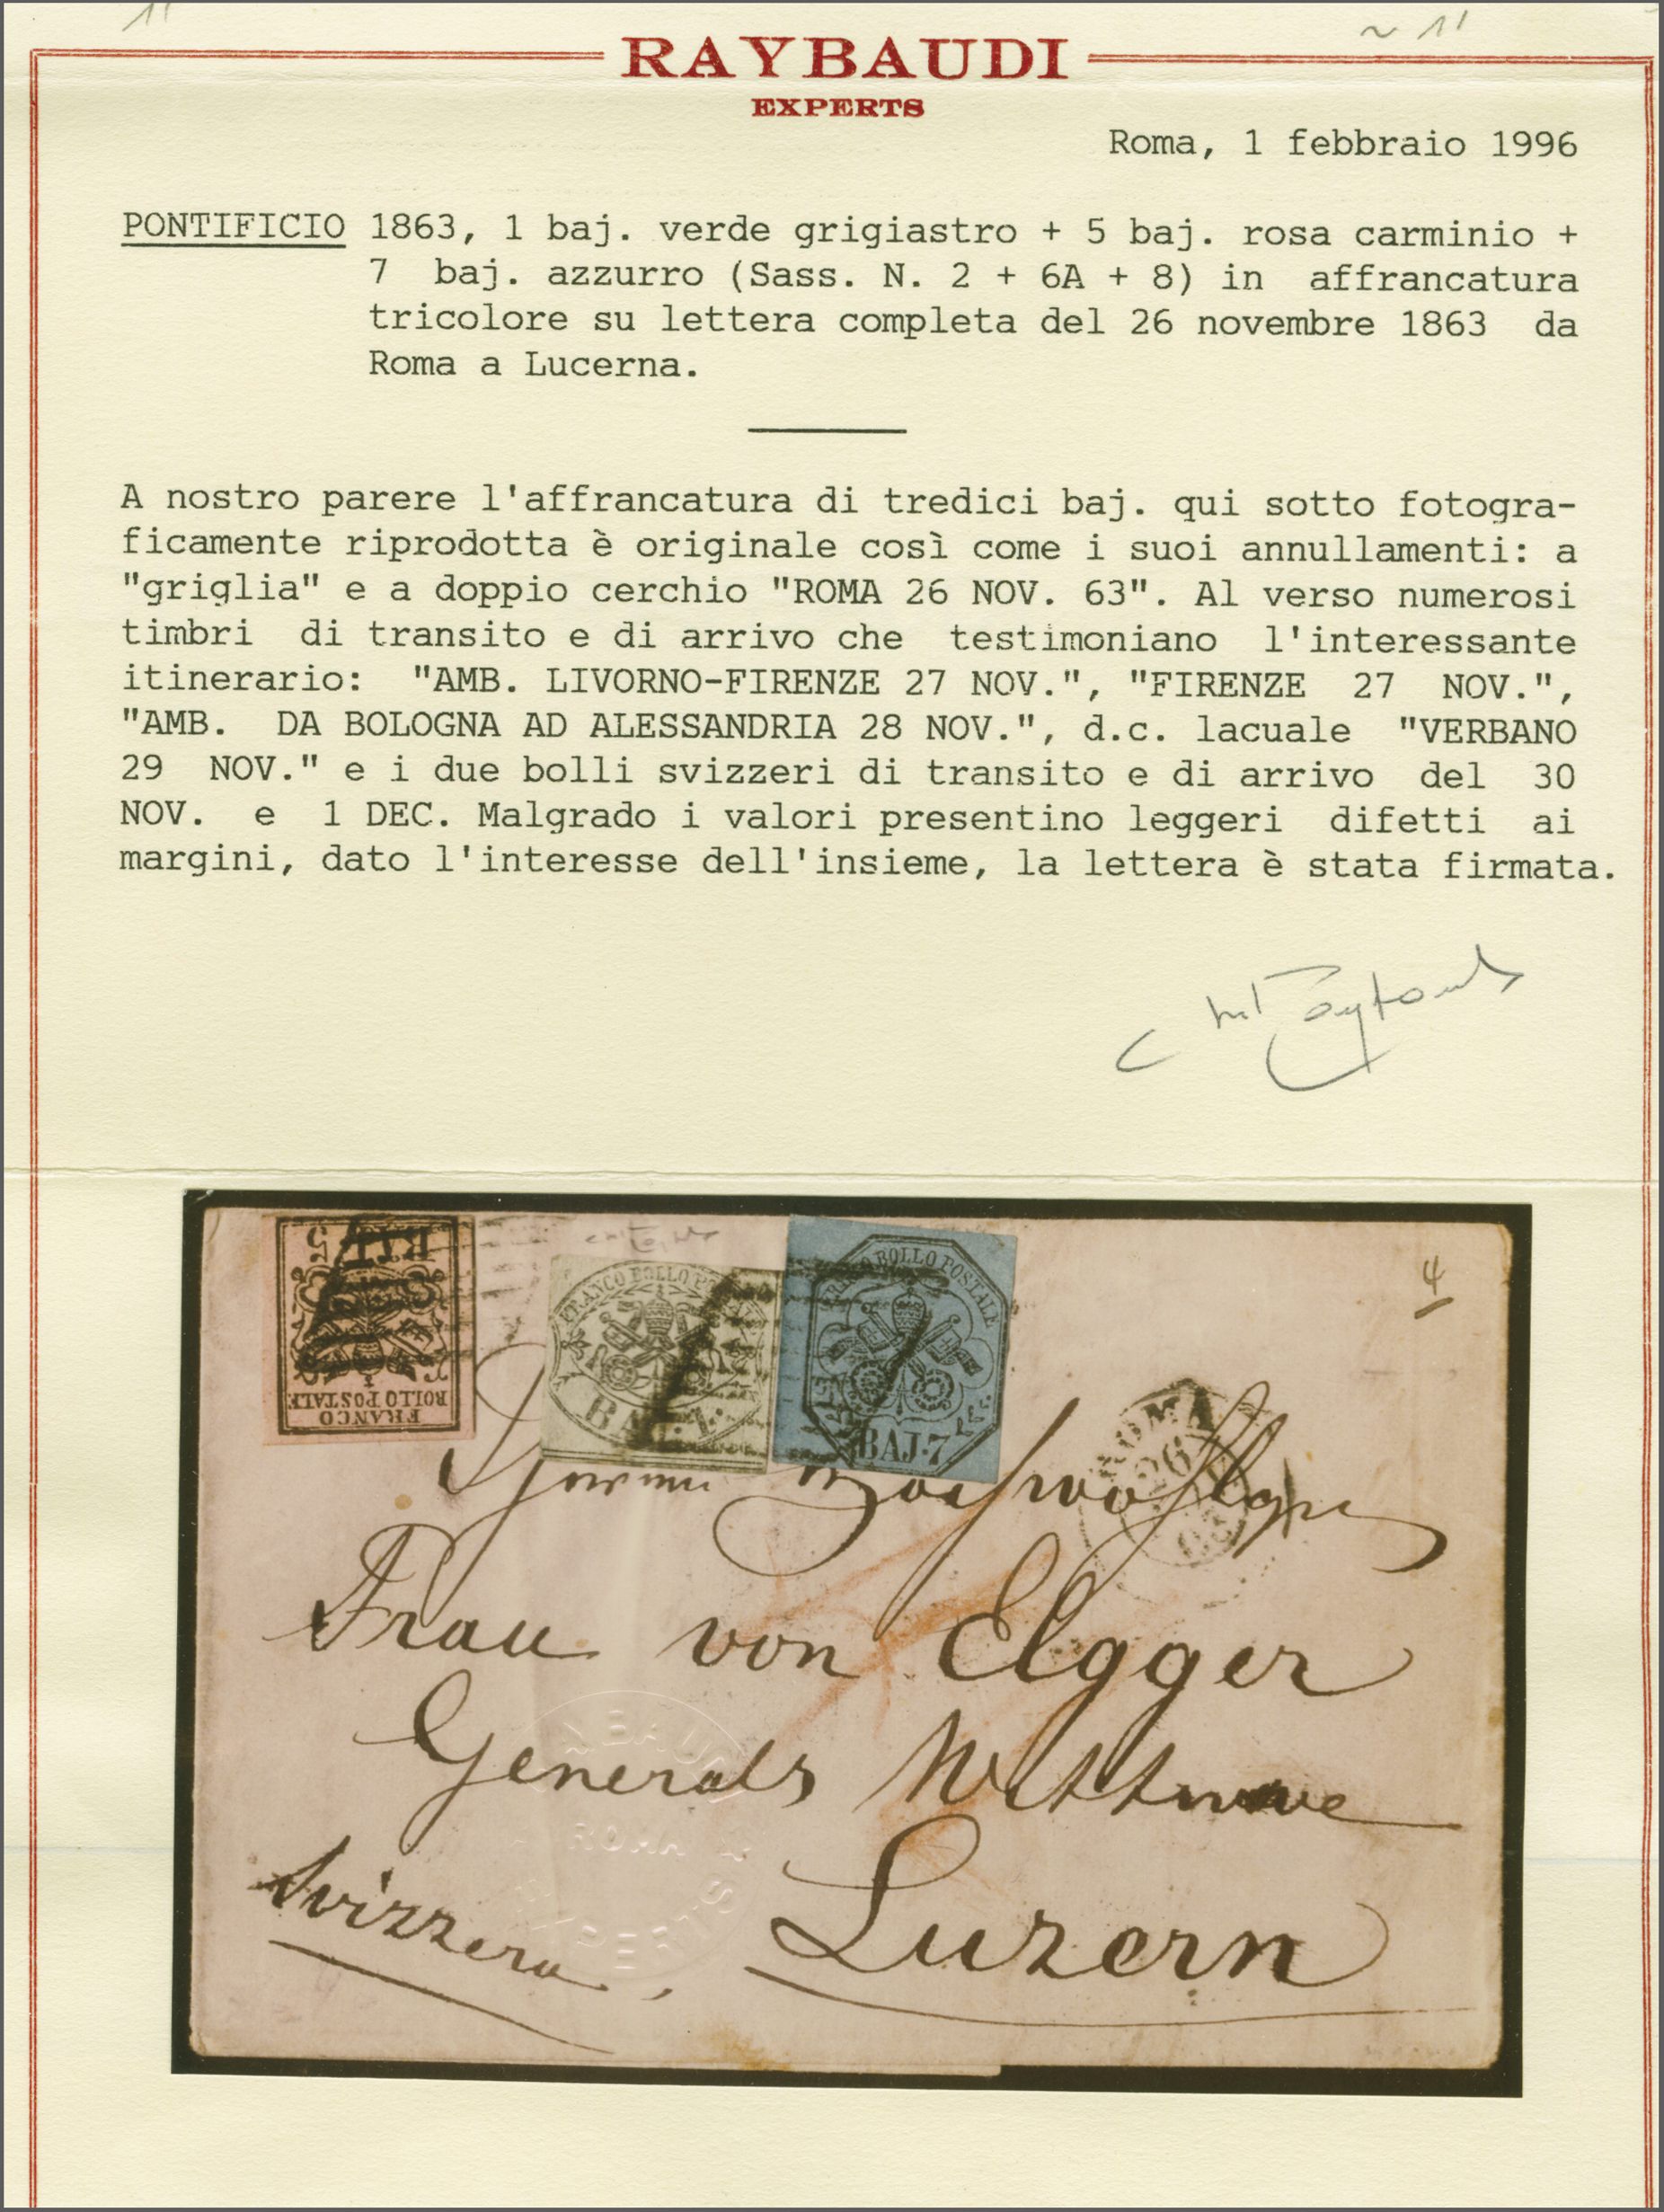 RAYBAUDI
EXPERTS
Roma, 1 febbraio 1996
PONTIFICIO 1863, 1 baj. verde grigiastro + 5 baj. rosa carminio +
7 baj. azzurro (Sass. N. 2 + 6A + 8) in affrancatura
tricolore su lettera completa del 26 novembre 1863 da
Roma a Lucerna.
A nostro parere l'affrancatura di tredici baj. qui sotto fotogra-
ficamente riprodotta è originale così come i suoi annullamenti: a
"griglia" e a doppio cerchio "ROMA 26 NOV. 63". Al verso numerosi
timbri di transito e di arrivo che testimoniano l'interessante
itinerario: "AMB. LIVORNO-FIRENZE 27 NOV.", "FIRENZE 27 NOV.",
"AMB. DA BOLOGNA AD ALESSANDRIA 28 NOV.", d.c. lacuale "VERBANO
29 NOV." e i due bolli svizzeri di transito e di arrivo del 30
NOV. e 1 DEC. Malgrado i valori presentino leggeri difetti ai
margini, dato l'interesse dell'insieme, la lettera è stata firmata.
BAJ 5
FRANCO
BOLLO POSTALE
FRANCO BOLLO POSTALE
BAJ. 1.
FRANCO BOLLO POSTALE
BAJ. 7
4
ROMA
26
63
Frau von Elgger
Generals Wittwe
Svizzera, Luzern
RAYBAUDI
ROMA
EXPERTS